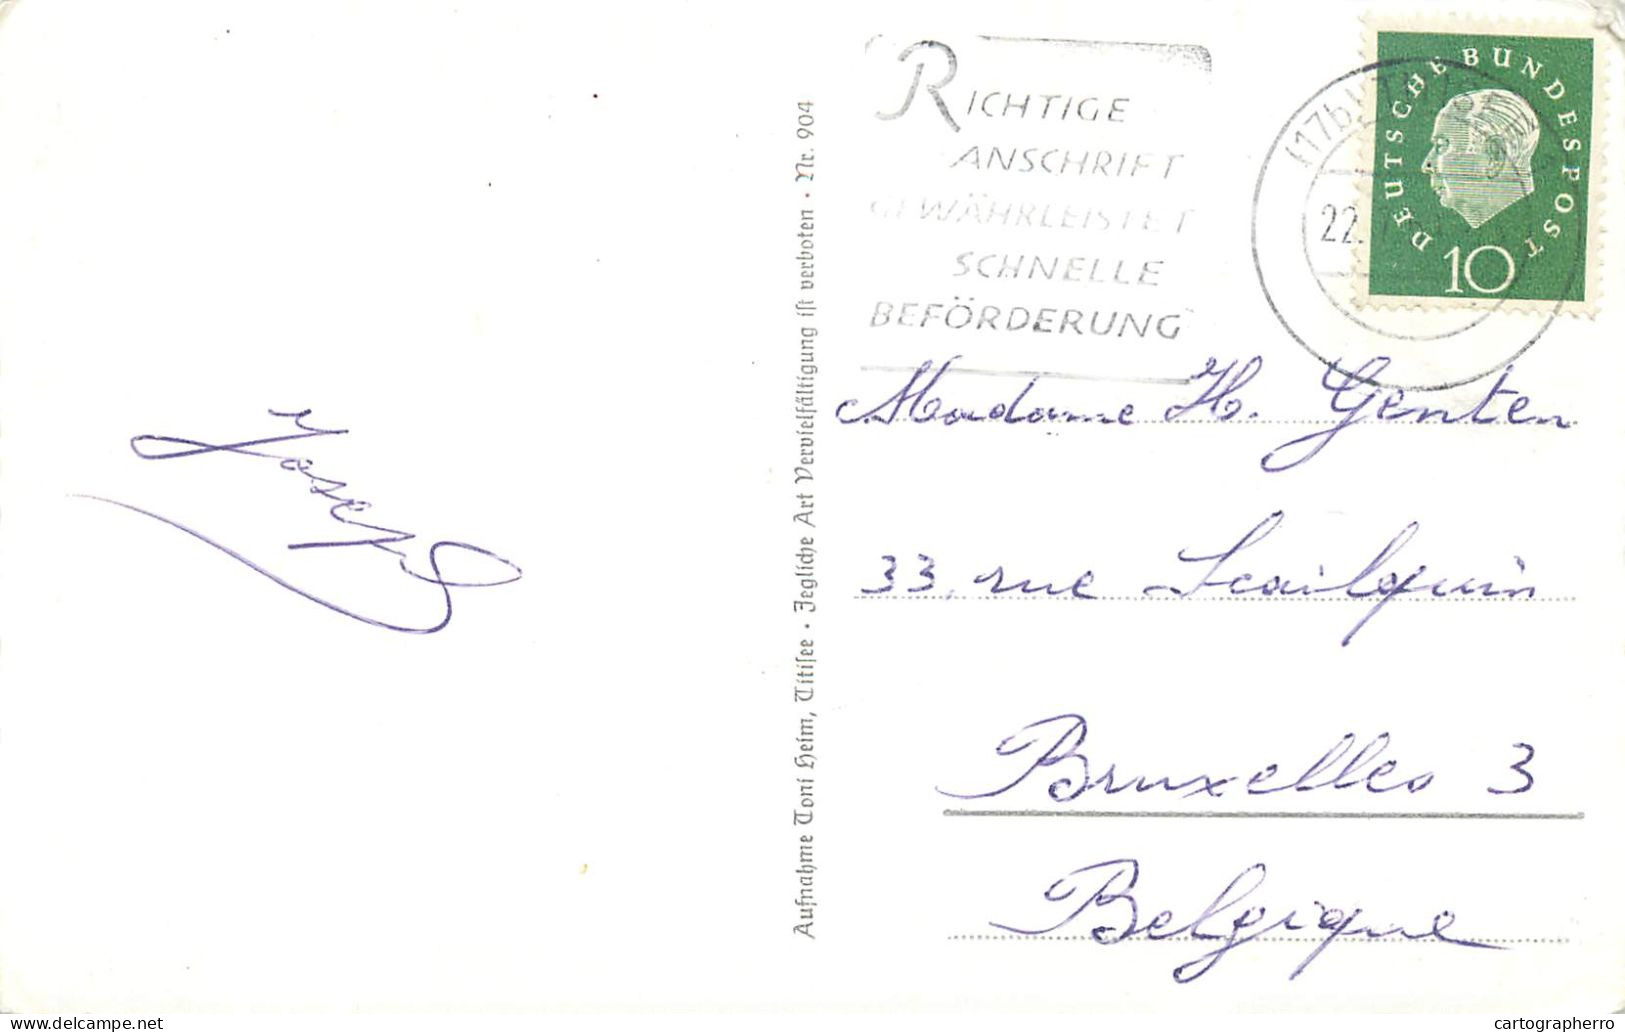 Joseph
Aufnahme Toni Heim, Titisee · Jegliche Art Vervielfältigung ist verboten · Nr. 904
RICHTIGE
ANSCHRIFT
GEWÄHRLEISTET
SCHNELLE
BEFÖRDERUNG
(17b)
22.
DEUTSCHE BUNDESPOST
10
Madame H. Genten
33, rue Scailquin
Bruxelles 3
Belgique
cartographerro